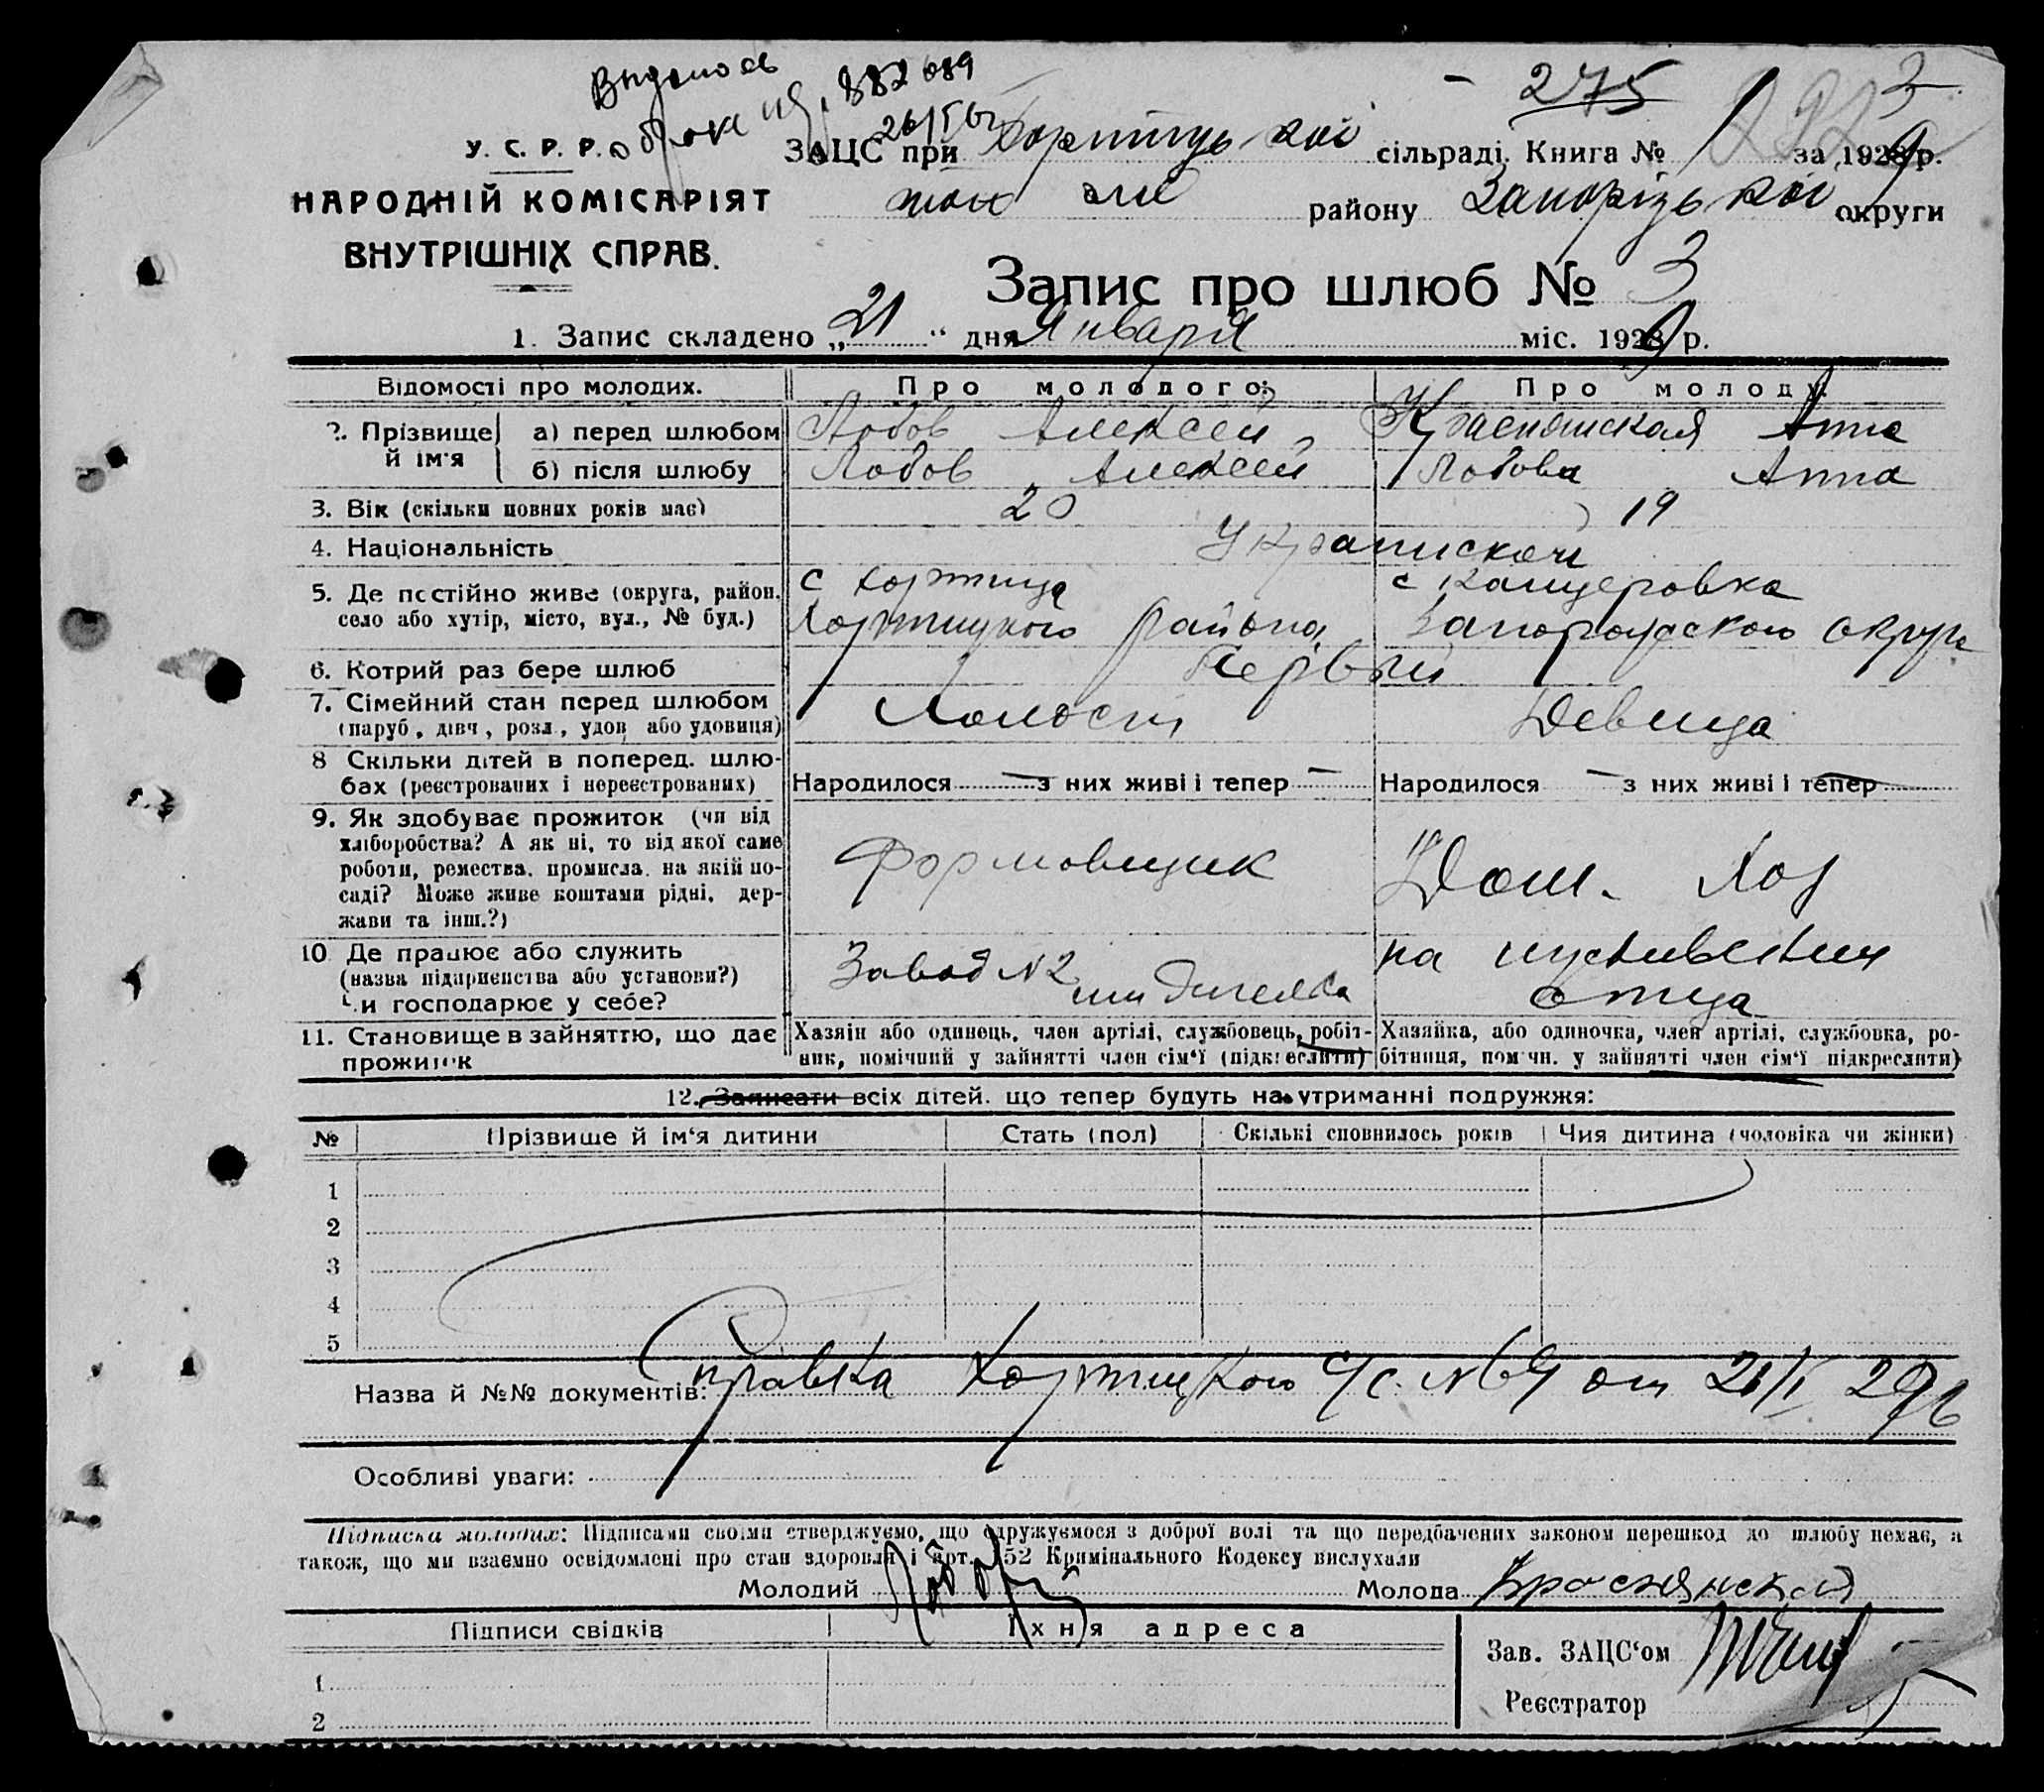 882089
26/I 61
- 275
3
У. С. Р. Р.
НАРОДНІЙ КОМІСАРІЯТ
ВНУТРІШНІХ СПРАВ.
ЗАЦС при Хортицької сільраді. Книга № 1 за 1929 р.
району Запорізької округи
Запис про шлюб № 3
1. Запис складено „ 21 " дня Января міс. 1929 р.
Відомості про молодих. Про молодого: Про молоду.
2. Прізвище й ім'я
а) перед шлюбом Лобов Алексей Краснянская Анна
б) після шлюбу Лобов Алексей Лобова Анна
3. Вік (скільки повних років має) 20 19
4. Національність
5. Де постійно живе (округа, район, с Хортица с Канцеровка
село або хутір, місто, вул., № буд.) Хортицкого района Запорожского округа
6. Котрий раз бере шлюб Первый
7. Сімейний стан перед шлюбом Холост Девица
(паруб., дівч., розл., удов. або удовиця)
8 Скільки дітей в поперед. шлю-
бах (реєстрованих і нереєстрованих) Народилося — з них живі і тепер — Народилося — з них живі і тепер —
9. Як здобуває прожиток (чи від
хліборобства? А як ні, то від якої саме
роботи, ремества, промисла, на якій по- Формовщик Дом. Хоз
саді? Може живе коштами рідні, дер-
жави та інш.?)
10 Де працює або служить Завод N2 на иждивении
(назва підприємства або установи?) отца
Чи господарює у себе?
11. Становище в зайняттю, що дає
прожиток
Хазяін або одинець, член артілі, службовець, робіт-
ник, помічний у зайнятті член сім'ї (підкреслити)
Хазяйка, або одиночка, член артілі, службовка, ро-
бітниця, помічн. у зайнятті член сім'ї підкреслити)
12. Записати всіх дітей, що тепер будуть на утриманні подружжя:
№ Прізвище й ім'я дитини Стать (пол) Скількі сповнилось років Чия дитина (чоловіка чи жінки)
1
2
3
4
5
Назва й №№ документів: Справка Хортицкого с/с. N69 от 21/I 29г
Особливі уваги:
Підписка молодих: Підписами своїми стверджуємо, що одружуємося з доброї волі та що передбачених законом перешкод до шлюбу немає, а
також, що ми взаємно освідомлені про стан здоровля і арт. 152 Кримінального Кодексу вислухали
Молодий Лобов Молода Краснянская
Підписи свідків Їхня адреса
Зав. ЗАЦС'ом
1
Реєстратор
2